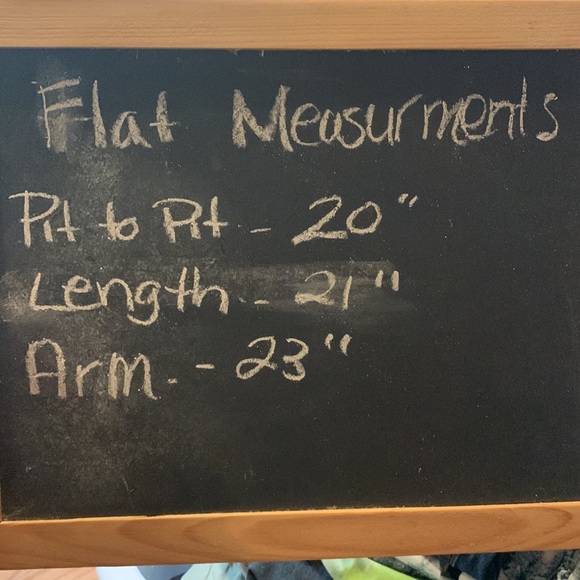 Flat Measurments
Pit to Pit - 20"
Length - 21"
Arm. - 23"